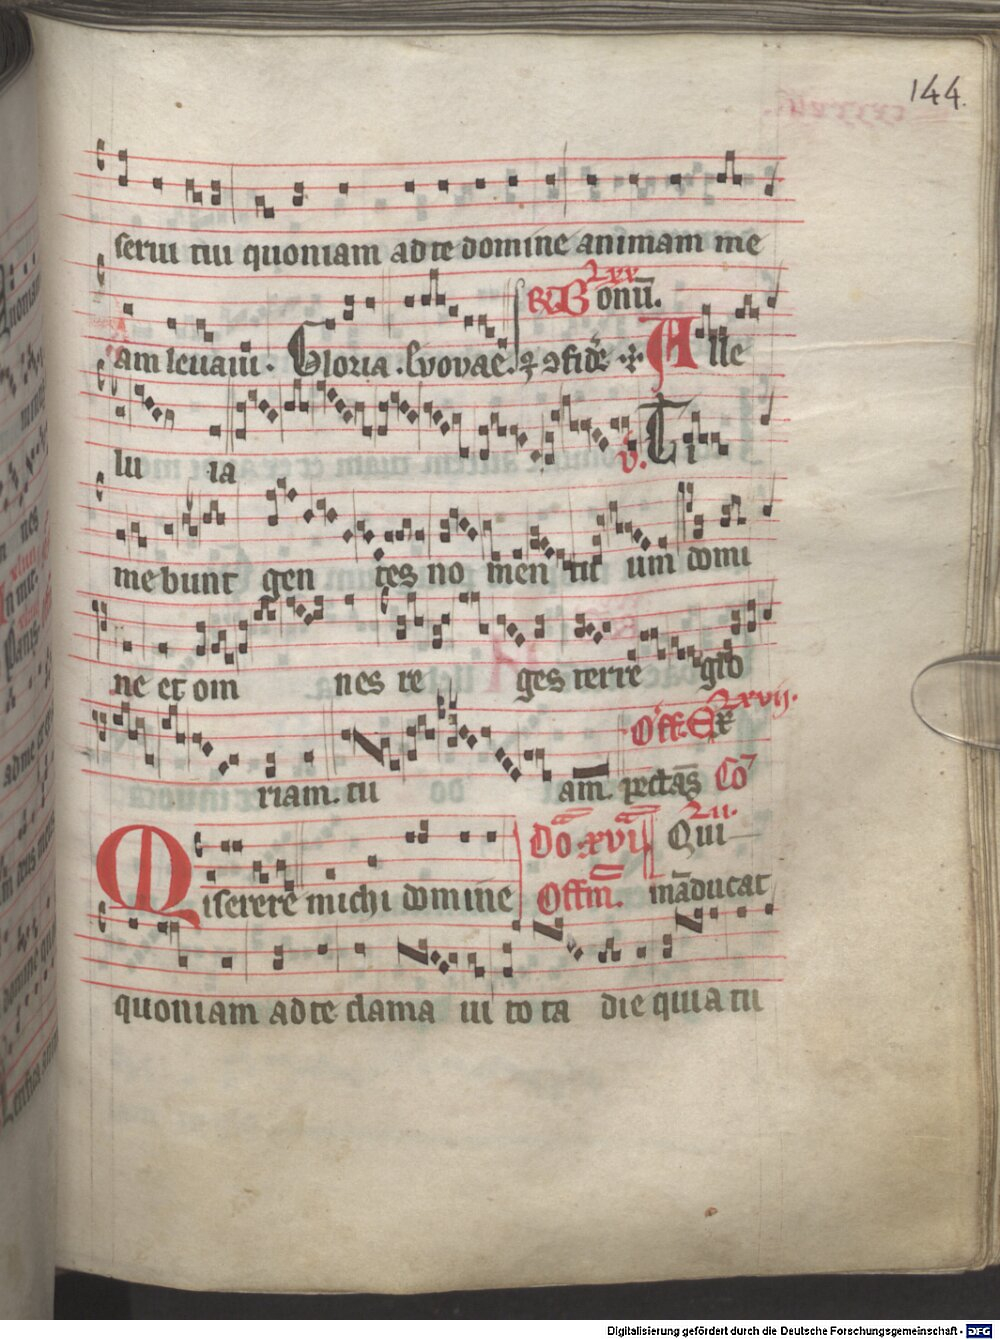 144.
serui tui quoniam ad te domine animam me
lxx
am leuaui. Gloria. Evovae. ꝛ ↄfide R Bonū. Alle
lu ia v. Ti
mebunt gen tes no men tu um domi
ne et om nes re ges terre glo
lxvij.
riam. tu am. Off. Ex pectās Co
Dō xvi lii. Qui
Miserere michi domine Offm. māducat
quoniam ad te clama ui to ta die quia tu
Digitalisierung gefördert durch die Deutsche Forschungsgemeinschaft - DFG